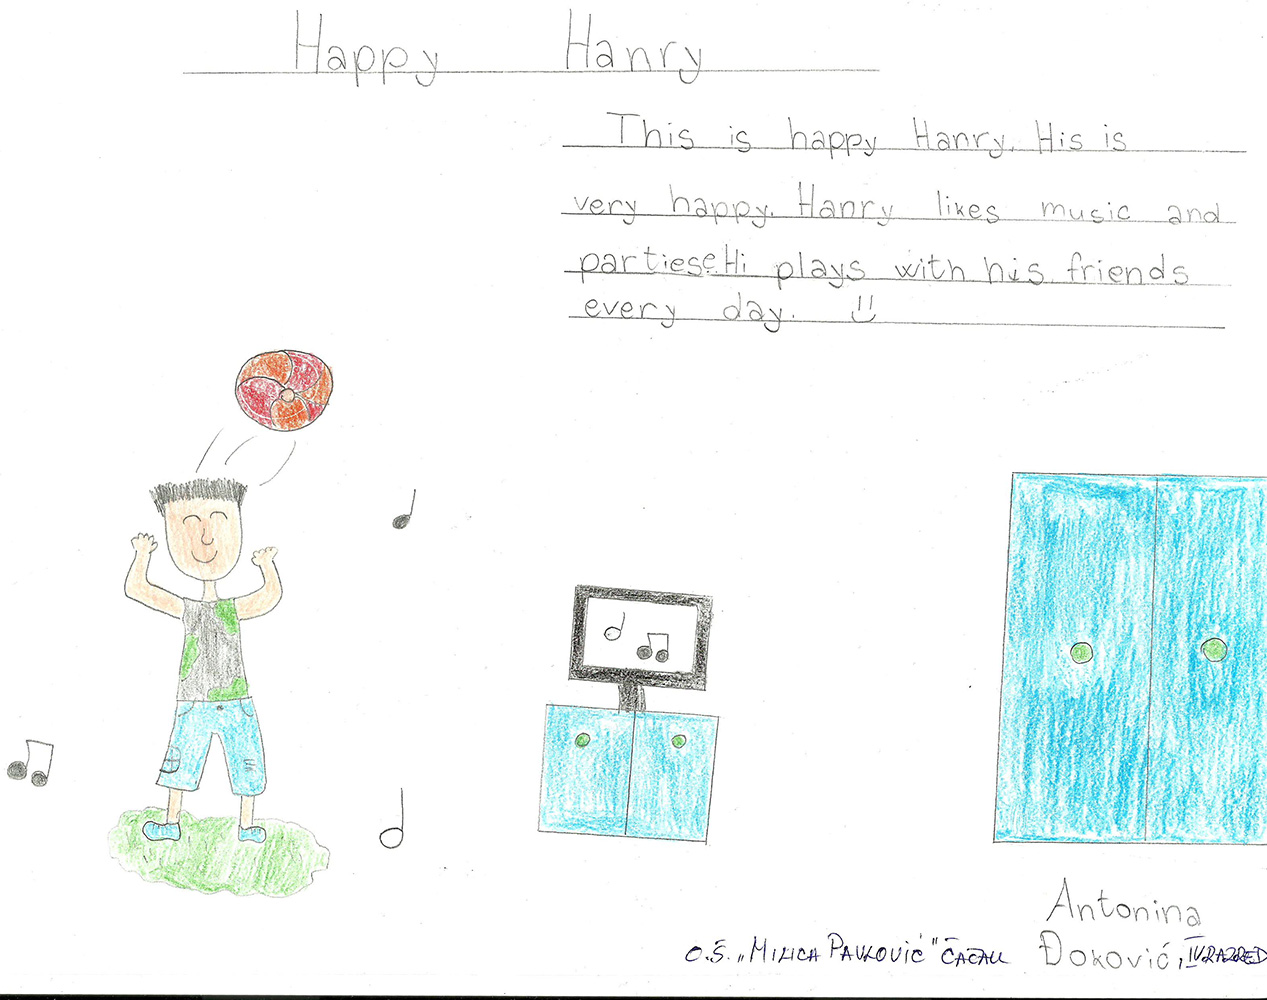 Happy Hanry
This is happy Hanry. His is
very happy. Hanry likes music and
partiese. Hi plays with his friends
every day.
Antonina
O.Š. „Milica Pavlović" Čačak Đoković, IV RAZRED